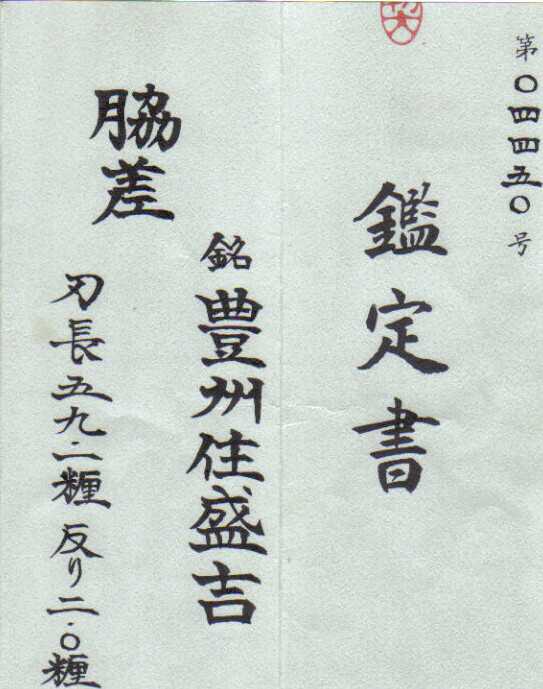 第〇四四五〇号
鑑定書
銘 豊州住盛吉
脇差
刃長五九・二糎 反り二・〇糎